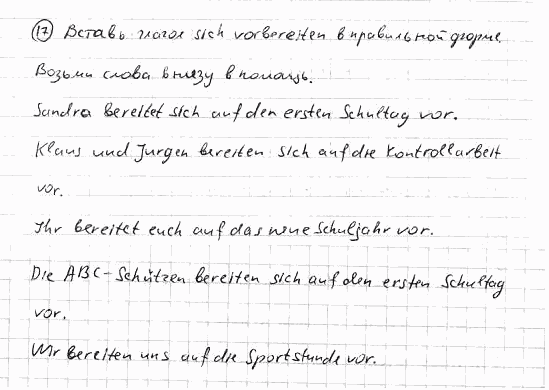 (17) Вставь глагол sich vorbereiten в правильной форме.
Возьми слова внизу в помощь.
Sandra bereitet sich auf den ersten Schultag vor.
Klaus und Jurgen bereiten sich auf die Kontrollarbeit
vor.
Ihr bereitet euch auf das neue Schuljahr vor.
Die ABC-Schützen bereiten sich auf den ersten Schultag
vor.
Wir bereiten uns auf die Sportstunde vor.